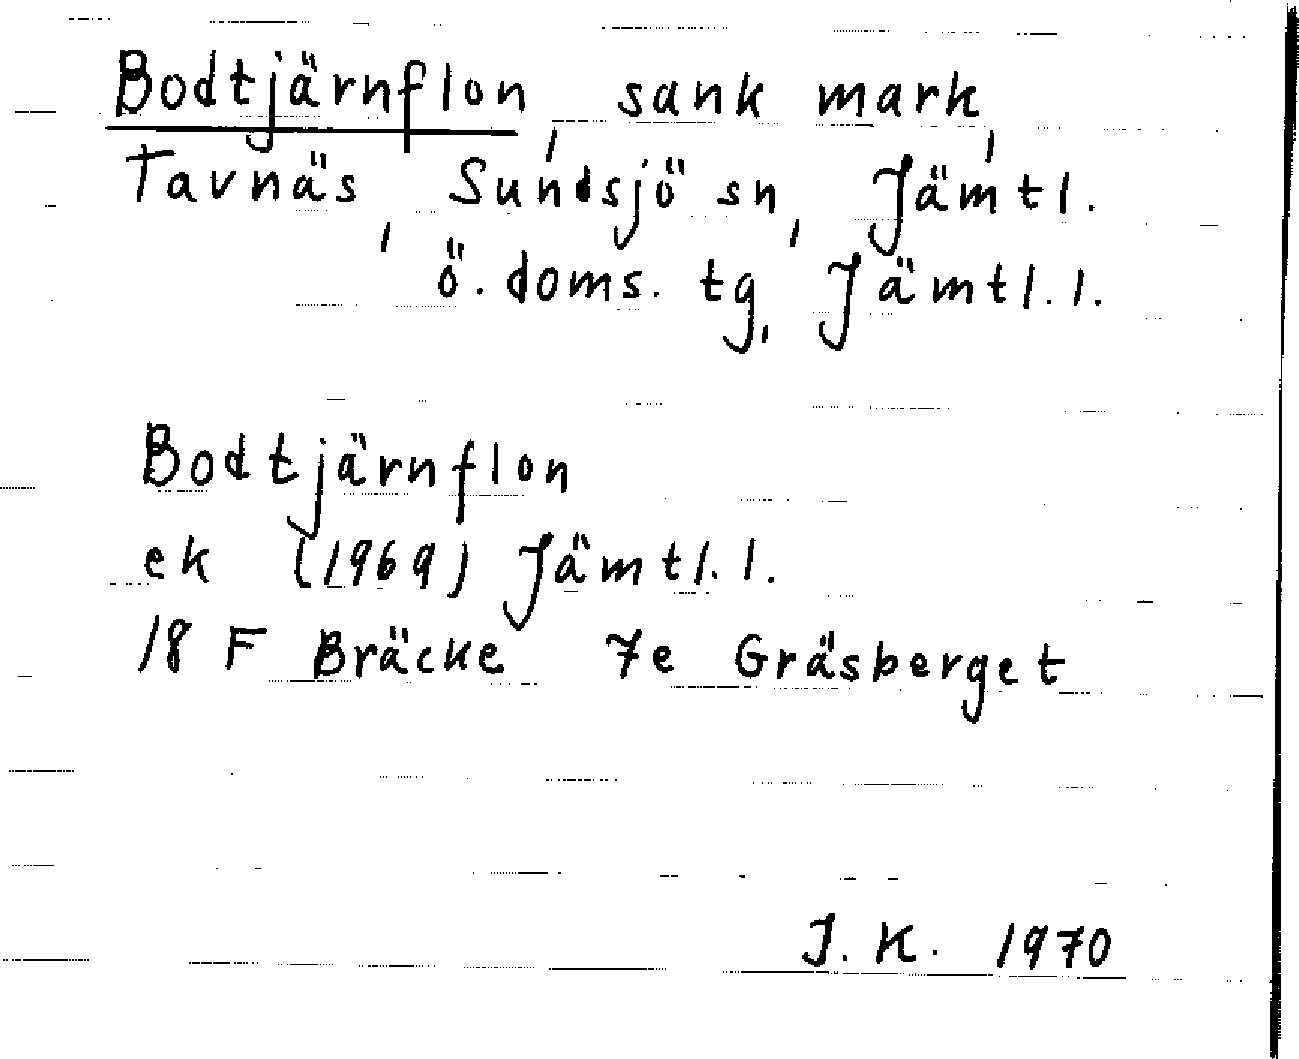 Bodtjärnflon, sank mark,
Tavnäs, Sundsjö sn, Jämtl.
ö. doms. tg, Jämtl. l.
Bodtjärnflon
ek (1969) Jämtl. l.
18 F Bräcke 7e Gräsberget
J. K. 1970